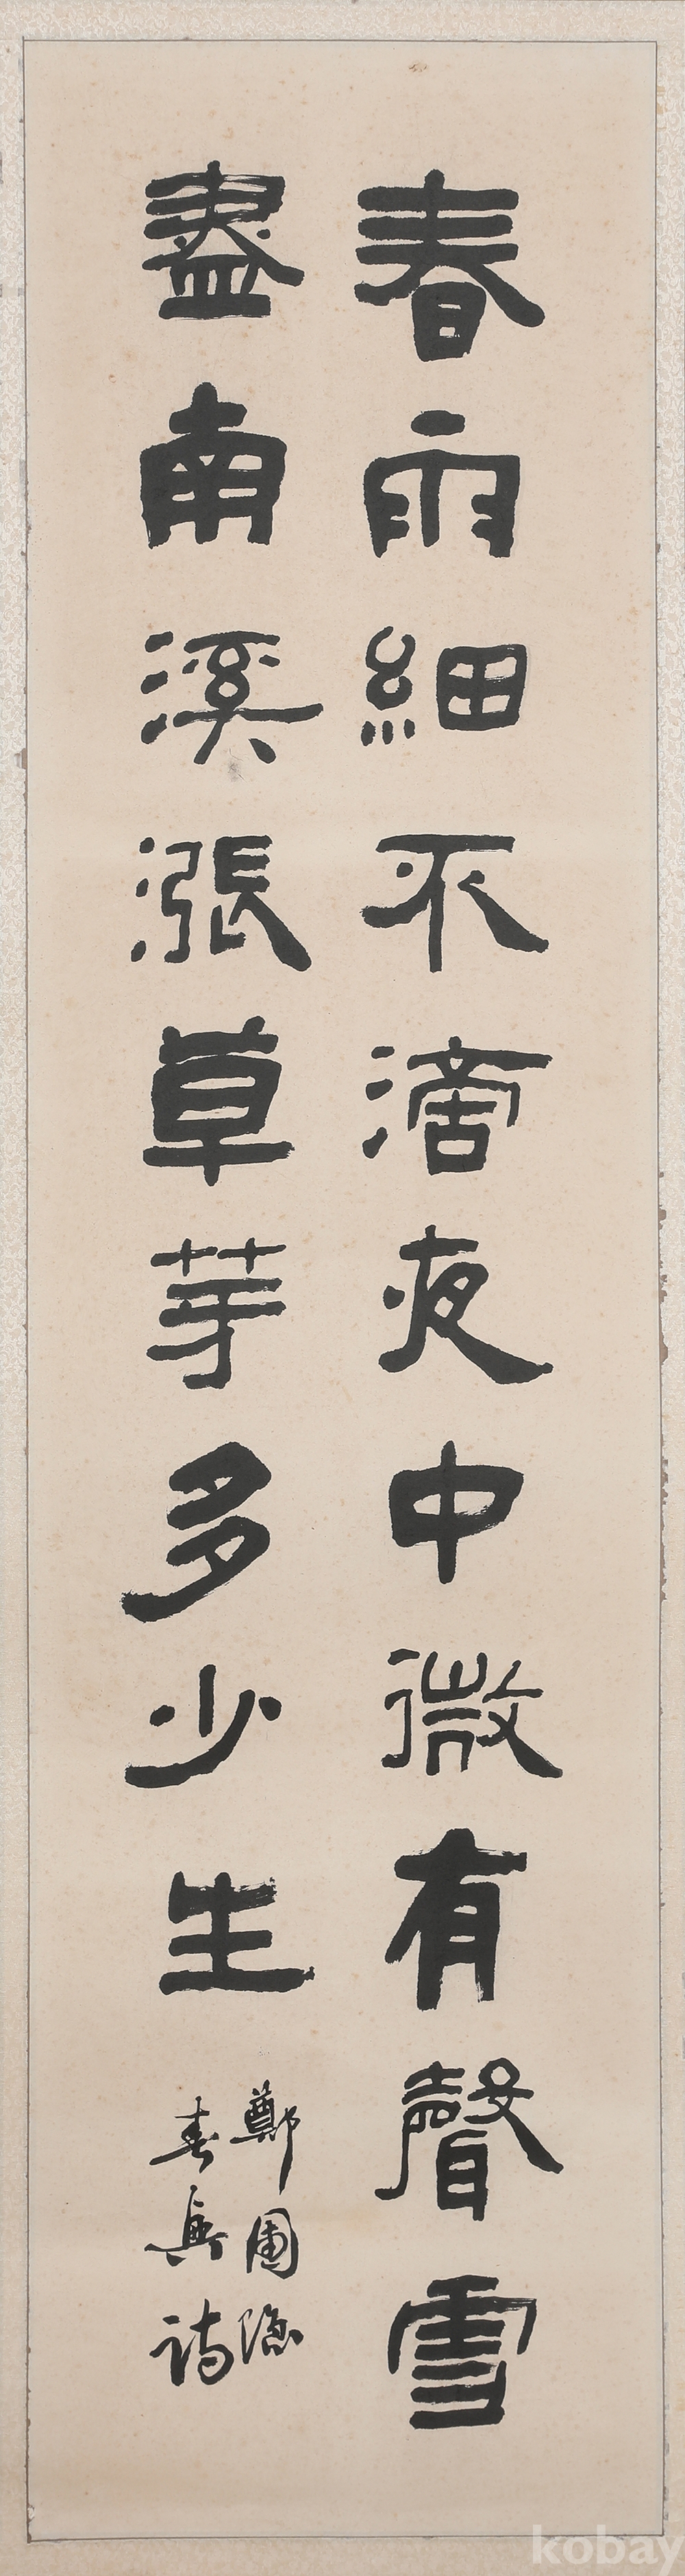 春雨細不滴夜中微有聲雪
盡南溪漲草芽多少生
鄭圃隱
春興詩
kobay